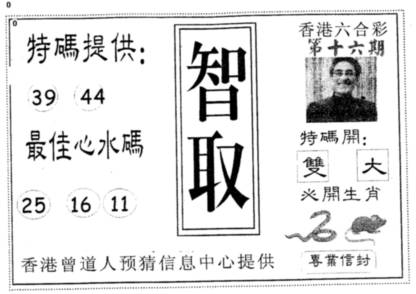 0
0
特碼提供：
39 44
最佳心水碼
25 16 11
智取
香港六合彩
第十六期
特碼開：
雙 大
必開生肖
專業信封
香港曾道人预猜信息中心提供